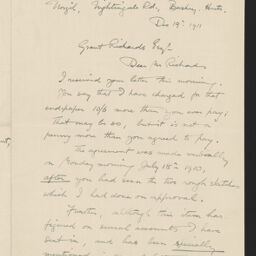 Nightingale Rd., Bushey, Herts.
Dec 19th. 1911
Grant Richards Esq.
Dear Mr Richards
I received your letter this morning.
You say that I have charged for that
endpaper 10/6 more than you ever pay;
that may be so, but it is not a
penny more than you agreed to pay.
The agreement was made verbally
on Monday morning July 18th 1910,
after you had seen the two rough sketches
which I had done on approval.
Further, although this item has
figured on several accounts I have
sent in, and has been specially
mentioned in